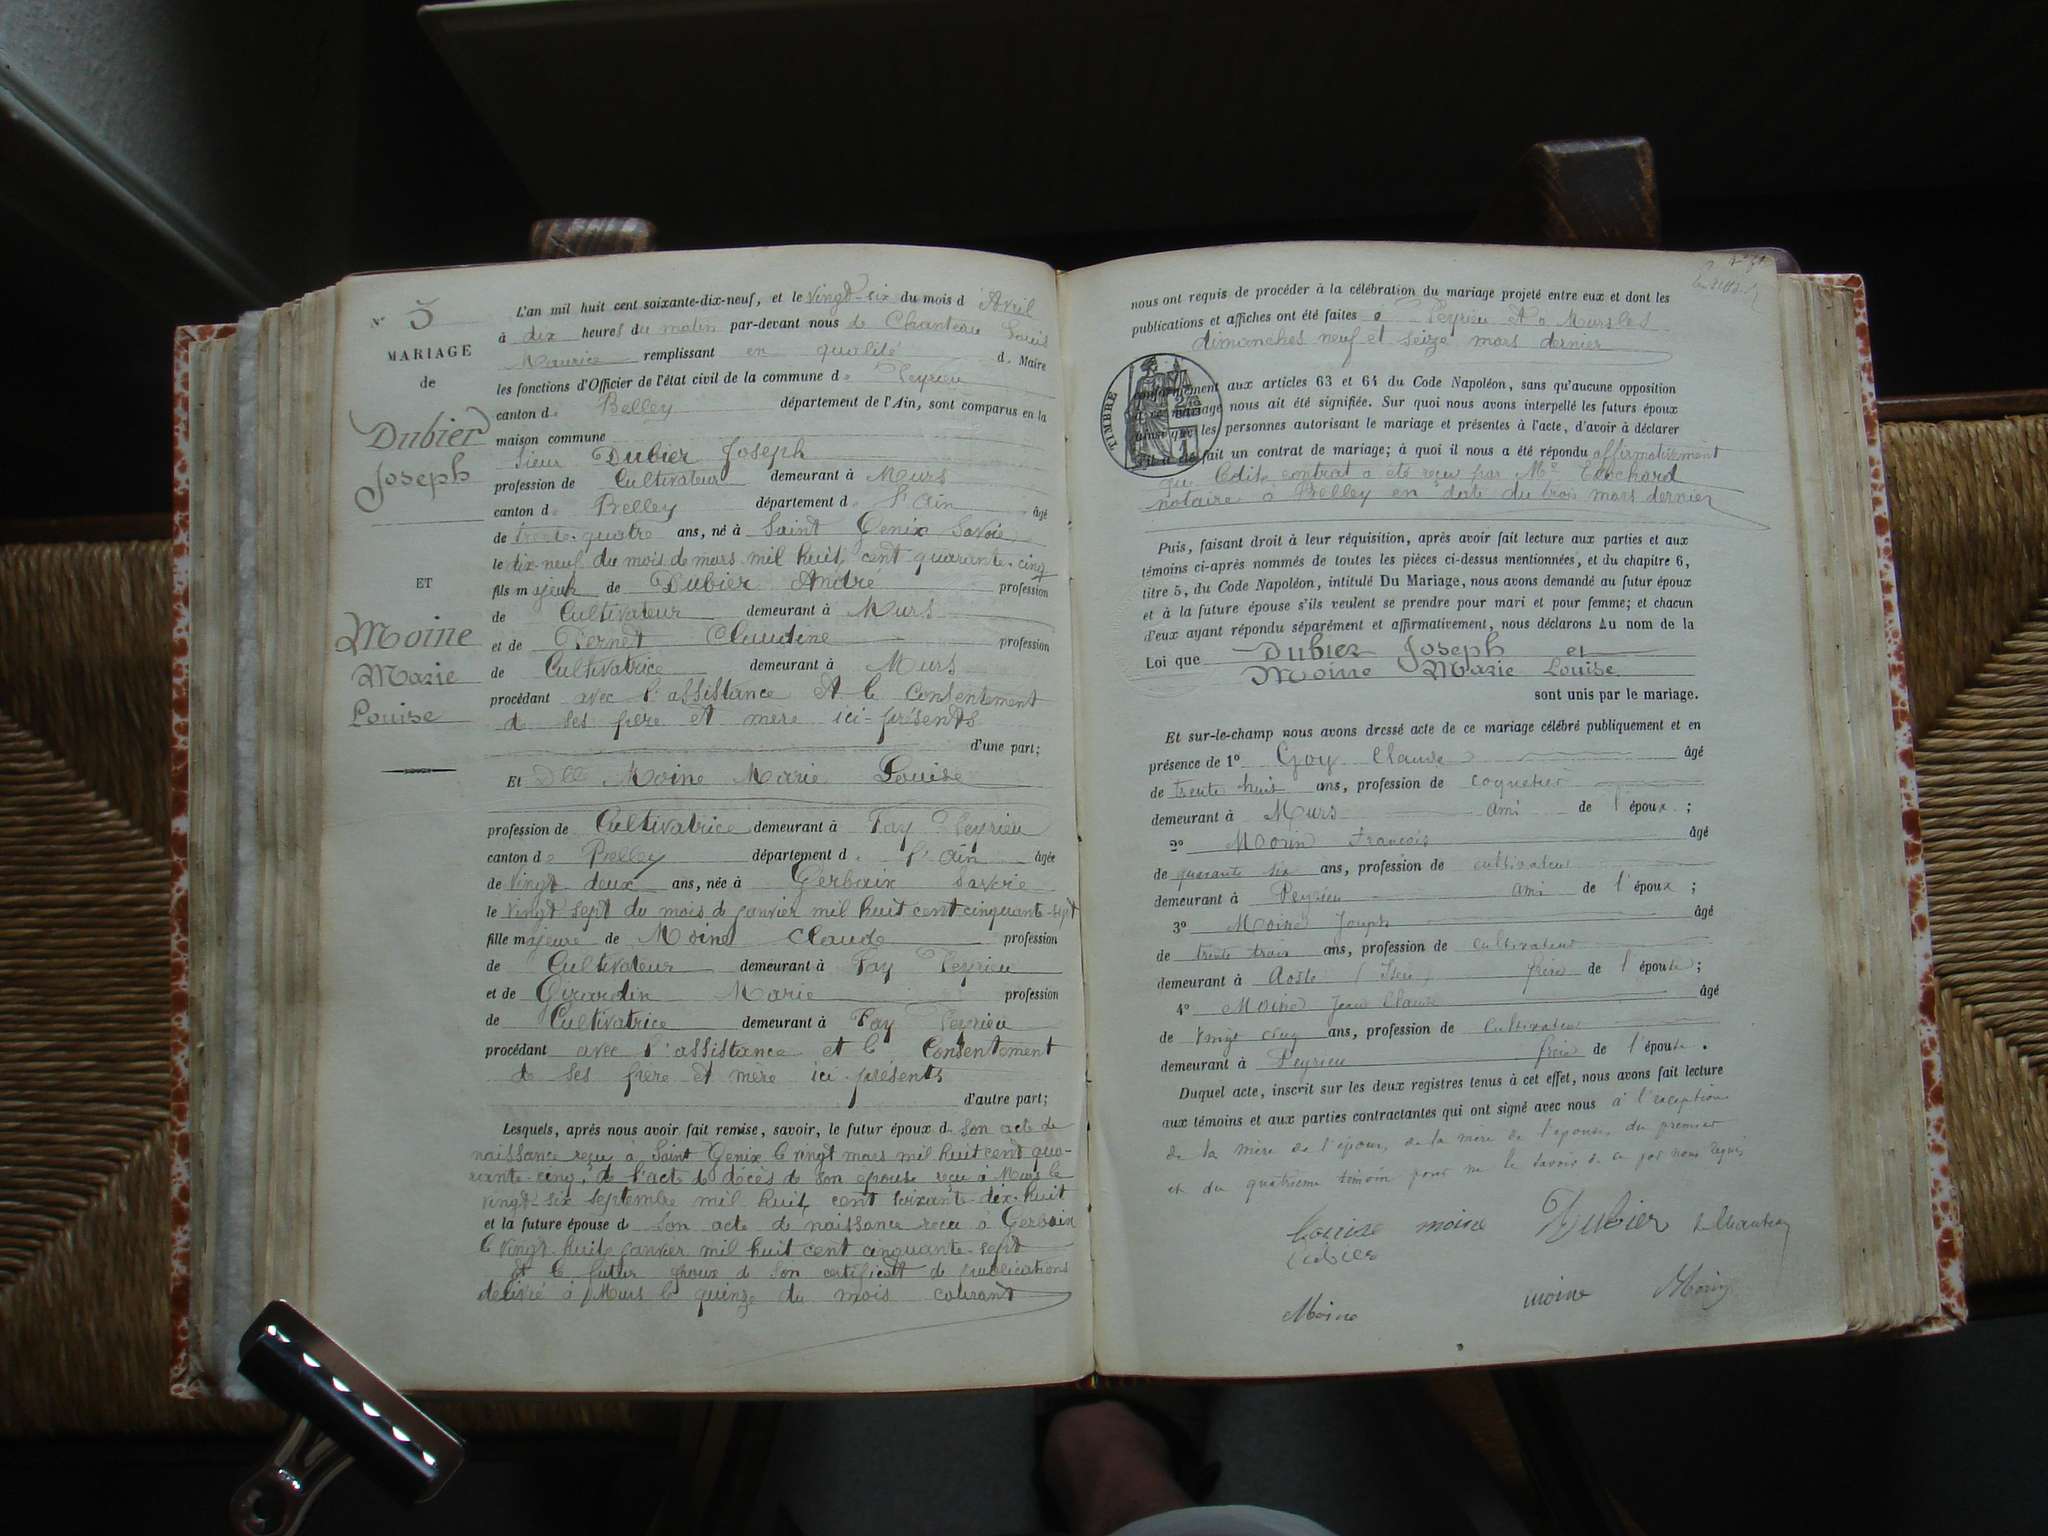 N° 5
MARIAGE
de
Dubier
Joseph
ET
Moine
Marie
Louise
L'an mil huit cent soixante-dix-neuf, et le vingt-six du mois d'Avril
à dix heures du matin par-devant nous de Chanteau Louis
Maurice remplissant en qualité d. Maire
les fonctions d'Officier de l'état civil de la commune de Peyrieu
canton de Belley département de l'Ain, sont comparus en la
maison commune
Sieur Dubier Joseph
profession de Cultivateur demeurant à Murs
canton de Belley département d. l'Ain âgé
de trente-quatre ans, né à Saint Genix Savoie
le dix-neuf du mois de mars mil huit cent quarante-cinq
fils majeur de Dubier André profession
de Cultivateur demeurant à Murs
et de Pernet Claudine profession
de Cultivatrice demeurant à Murs
procédant avec l'assistance et le Consentement
de ses père et mère ici-présents
d'une part;
Et Dlle Moine Marie Louise
profession de Cultivatrice demeurant à Fay Peyrieu
canton de Belley département d. l'Ain âgée
de vingt-deux ans, née à Gerbaix Savoie
le vingt sept du mois de janvier mil huit cent cinquante-sept
fille majeure de Moine Claude profession
de Cultivateur demeurant à Fay Peyrieu
et de Girardin Marie profession
de Cultivatrice demeurant à Fay Peyrieu
procédant avec l'assistance et le Consentement
de ses père et mère ici présents
d'autre part;
Lesquels, après nous avoir fait remise, savoir, le futur époux de son acte de
naissance reçu à Saint Genix le vingt mars mil huit cent qua-
rante-cinq, de l'acte de décès de son épouse reçu à Murs le
vingt-six septembre mil huit cent soixante-dix-huit
et la future épouse d son acte de naissance reçu à Gerbaix
le vingt-huit janvier mil huit cent cinquante-sept
et le futur époux de son certificat de publications
délivré à Murs le quinze du mois courant
nous ont requis de procéder à la célébration du mariage projeté entre eux et dont les
publications et affiches ont été faites à Peyrieu et à Murs les
dimanches neuf et seize mars dernier
TIMBRE
conformément aux articles 63 et 64 du Code Napoléon, sans qu'aucune opposition
à ce mariage nous ait été signifiée. Sur quoi nous avons interpellé les futurs époux
ainsi que les personnes autorisant le mariage et présentes à l'acte, d'avoir à déclarer
s'il a été fait un contrat de mariage; à quoi il nous a été répondu affirmativement
que ledit contrat a été reçu par Me
notaire à Belley en date du trois mars dernier
Puis, faisant droit à leur réquisition, après avoir fait lecture aux parties et aux
témoins ci-après nommés de toutes les pièces ci-dessus mentionnées, et du chapitre 6,
titre 5, du Code Napoléon, intitulé Du Mariage, nous avons demandé au futur époux
et à la future épouse s'ils veulent se prendre pour mari et pour femme; et chacun
d'eux ayant répondu séparément et affirmativement, nous déclarons Au nom de la
Loi que Dubier Joseph et
Moine Marie Louise
sont unis par le mariage.
Et sur-le-champ nous avons dressé acte de ce mariage célébré publiquement et en
présence de 1° Goy Claude âgé
de trente huit ans, profession de coquetier
demeurant à Murs ami de l'époux;
2° Morin François âgé
de quarante six ans, profession de cultivateur
demeurant à Peyrieu ami de l'époux;
3° Moine Joseph âgé
de trente trois ans, profession de cultivateur
demeurant à Aoste (Isère) frère de l'épouse;
4° Moine Jean Claude âgé
de vingt cinq ans, profession de Cultivateur
demeurant à Peyrieu frère de l'épouse.
Duquel acte, inscrit sur les deux registres tenus à cet effet, nous avons fait lecture
aux témoins et aux parties contractantes qui ont signé avec nous à l'exception
de la mère de l'époux, de la mère de l'épouse, du premier
et du quatrième témoin pour ne le savoir de ce par nous requis
Louise moine Dubier de Chanteau
Dubier
Moine moine Morin